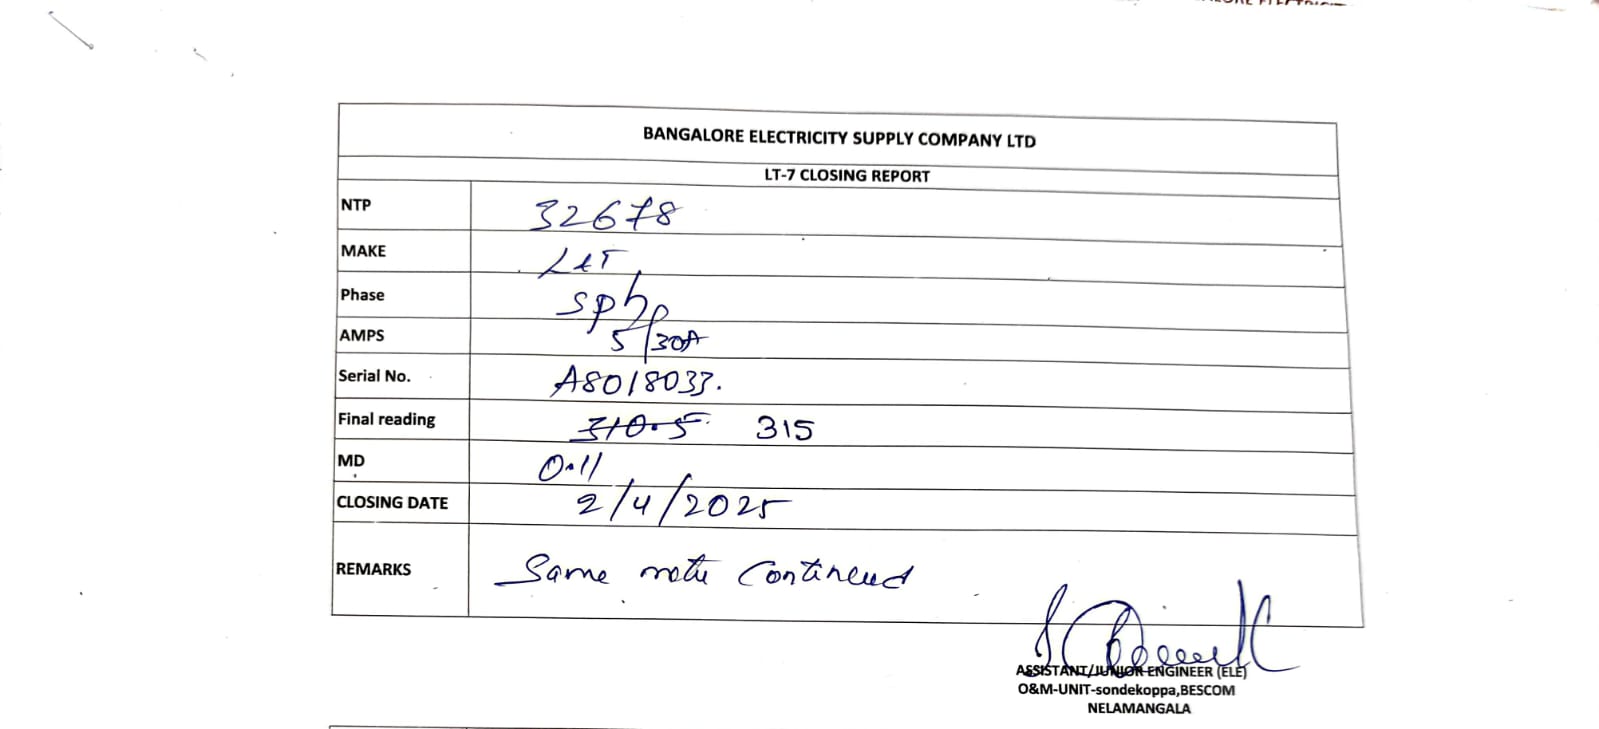 BANGALORE ELECTRICITY SUPPLY COMPANY LTD
LT-7 CLOSING REPORT
NTP 32678
MAKE L&T
Phase sph
AMPS 5/30A
Serial No. A8018033.
Final reading 310.5 315
MD 0.11
CLOSING DATE 2/4/2025
REMARKS Same metu Contineud
ASSISTANT/JUNIOR ENGINEER (ELE)
O&M-UNIT-sondekoppa,BESCOM
NELAMANGALA